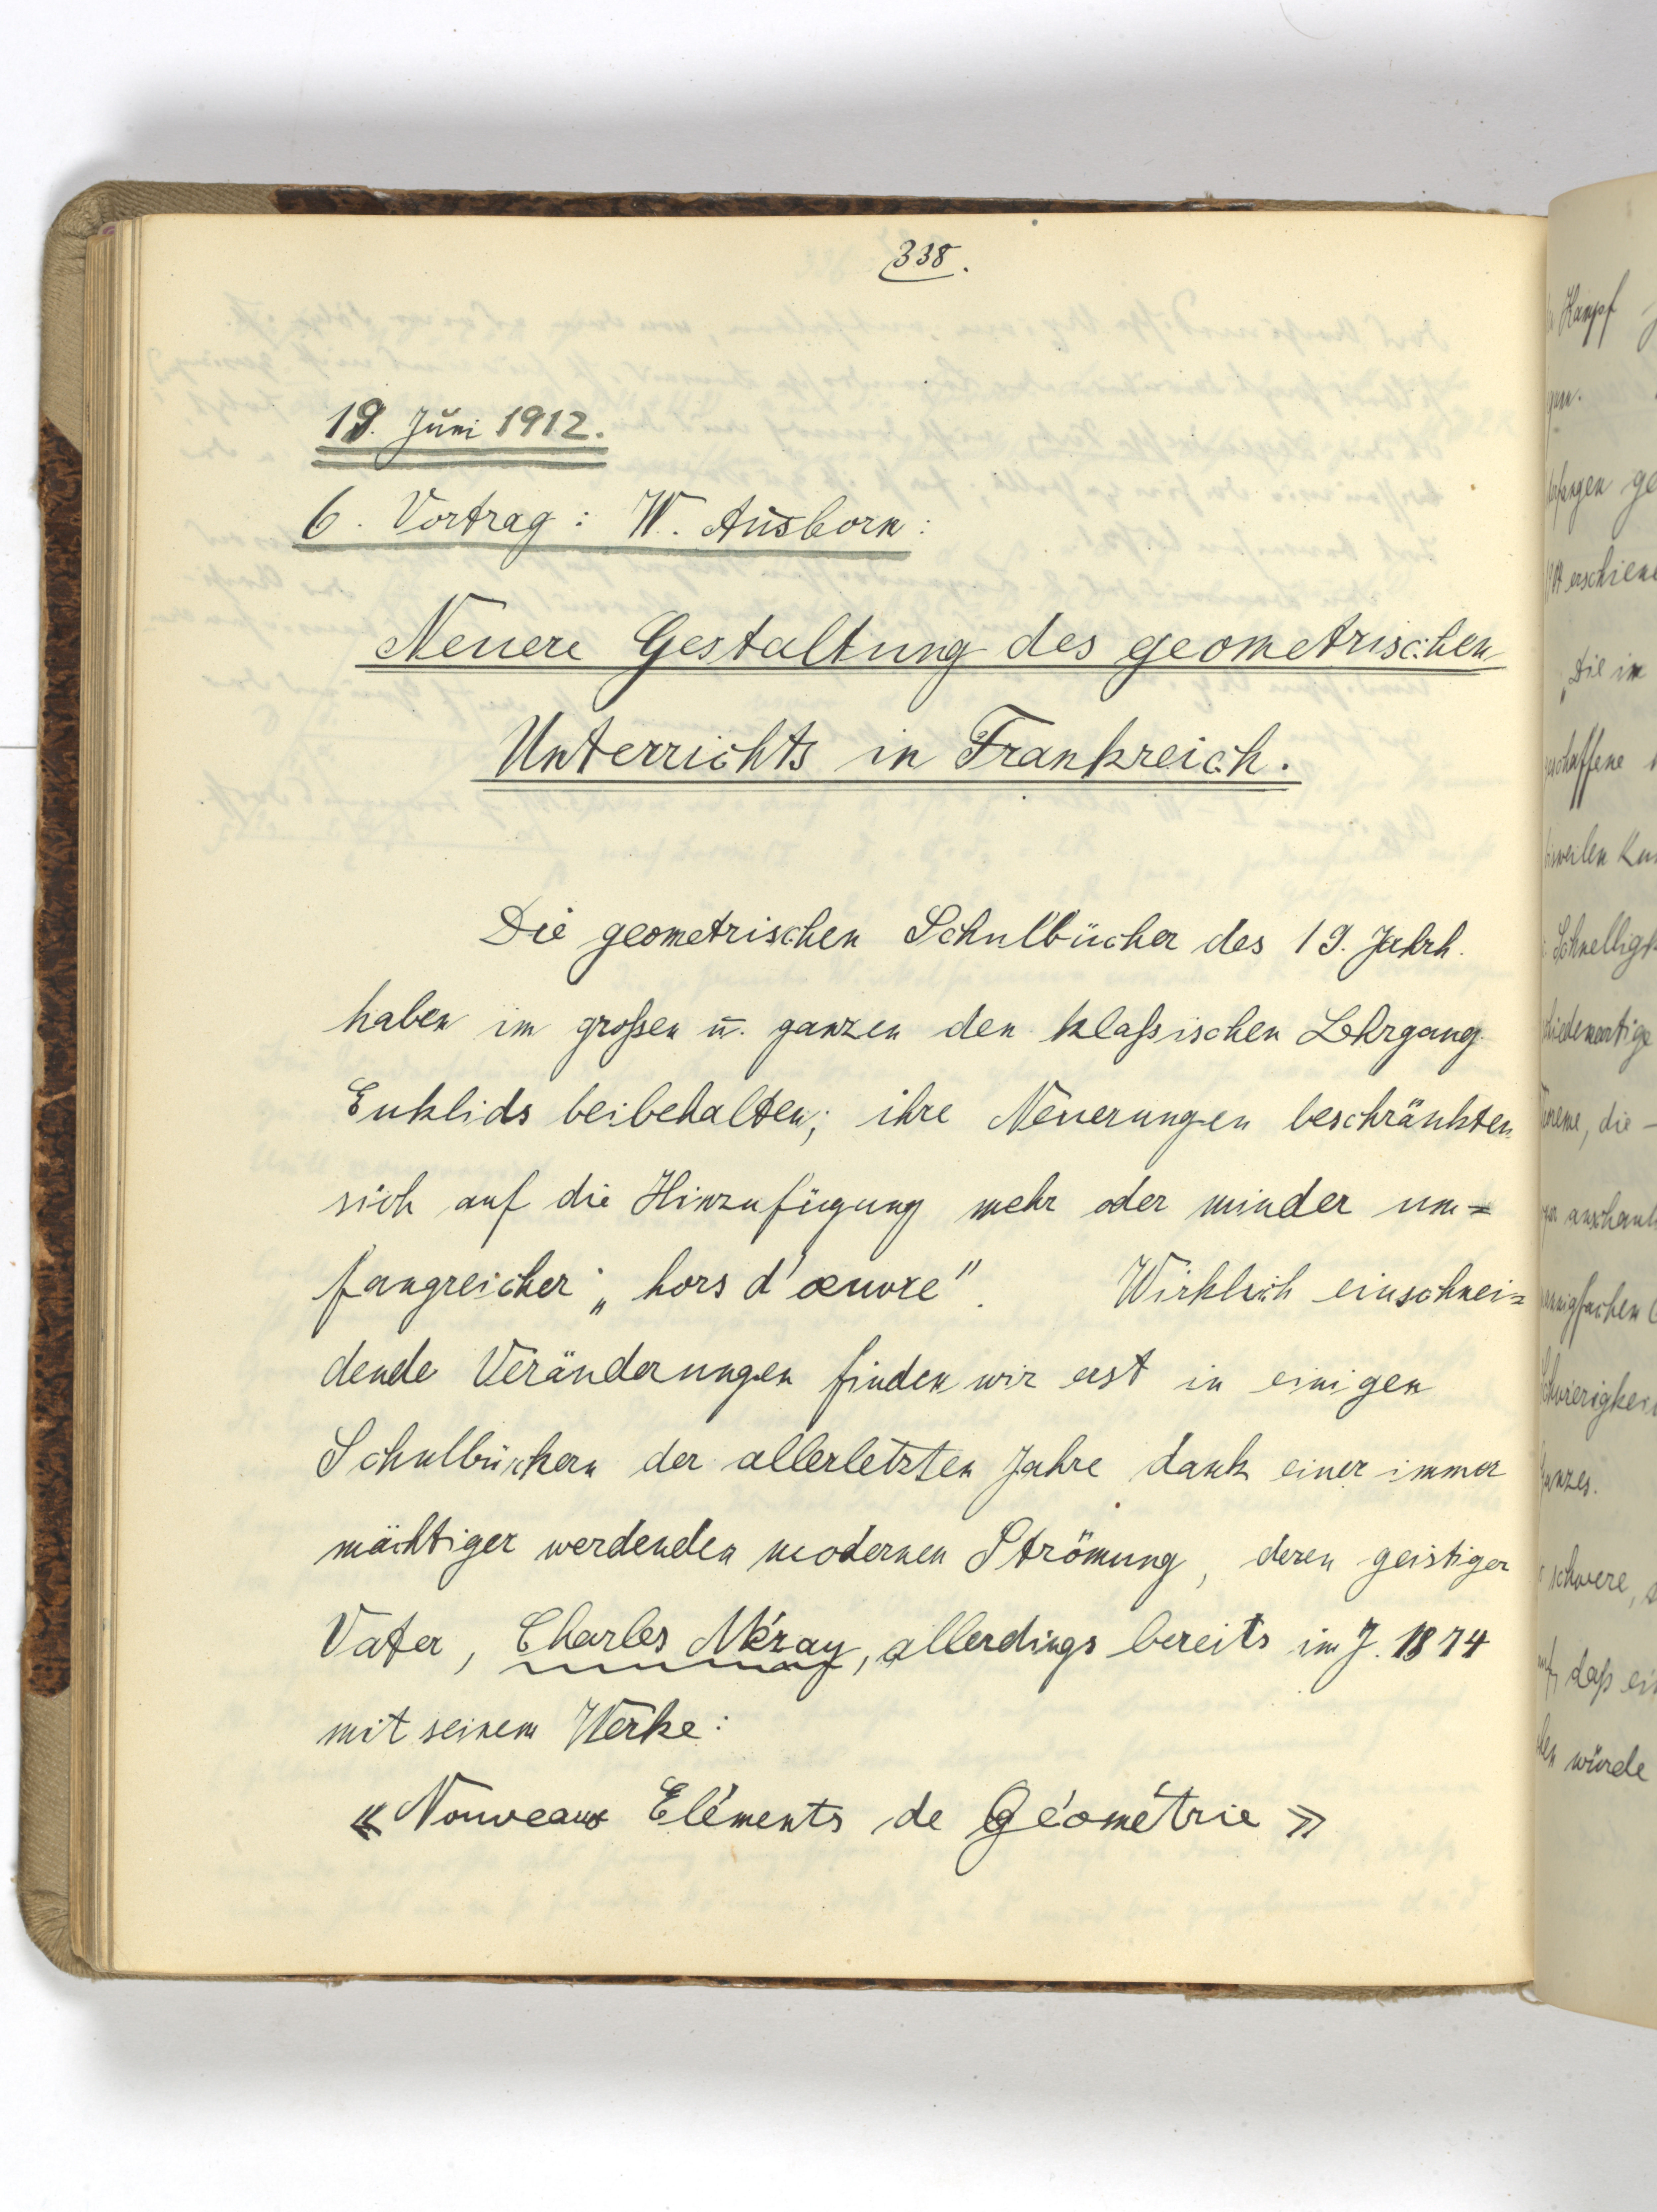 338.
19. Juni 1912.
6. Vortrag: W. Ausborn:
Neuere Gestaltung des geometrischen
Unterrichts in Frankreich.
Die geometrischen Schulbücher des 19. Jahrh.
haben im großen u. ganzen den klaßsischen Lehrgang
Euklids beibehalten; ihre Neuerungen beschränkten
sich auf die Hinzufügung mehr oder minder um=
fangreicher „hors d'œuvre". Wirklich einschnei=
dende Veränderungen finden wir erst in einigen
Schulbüchern der allerletzten Jahre dank einer immer
mächtiger werdenden modernen Strömung, deren geistiger
Vater, Charles Méray, allerdings bereits im J. 1874
mit seinem Werke:
« Nouveaux Eléments de Géométrie »
Kampf
erschiene
Die im
schaffene
Schnelligk
die –
schwere,
daß ei
würde